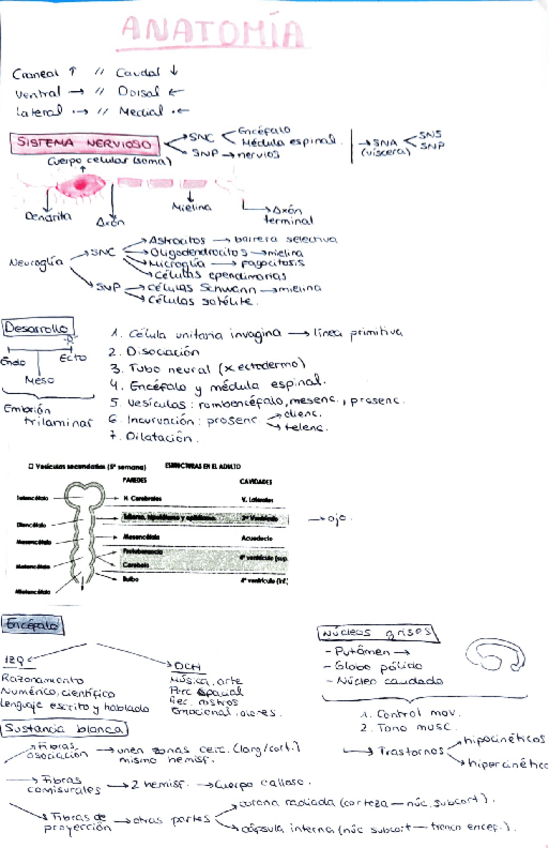 ANATOMÍA
Craneal ↑ // Caudal ↓
Ventral → // Dorsal ←
Lateral ·→ // Medial ·←
SISTEMA NERVIOSO → SNC → Encéfalo
Médula espinal.
SNP → nervios
→ SNA (víscera) SNS
SNP
Cuerpo celular (soma)
Dendrita
Axón
Mielina
Axón terminal
Neuroglía → SNC → Astrocitos → barrera selectiva
→ Oligodendrocitos → mielina
→ Microglía → fagocitosis
→ Células ependimarias
→ SNP → células Schwann → mielina
→ Células satélite.
Desarrollo
Endo Ecto
Meso
Embrión trilaminar
1. Célula unitaria invagina → línea primitiva
2. Disociación
3. Tubo neural (x ectodermo)
4. Encéfalo y médula espinal.
5. Vesículas: romboencéfalo, mesenc., prosenc.
6 Incurvación: prosenc. → dienc.
→ telenc.
7. Dilatación.
Vesículas secundarias (5ª semana) ESTRUCTURAS EN EL ADULTO
PAREDES CAVIDADES
Telencéfalo H. Cerebrales V. Laterales
Diencéfalo 3er Ventrículo → ojo.
Mesencéfalo Mesencéfalo Acueducto
Metencéfalo Protuberancia 4º ventrículo (sup.
Cerebelo
Mielencéfalo Bulbo 4º ventrículo (inf.)
Encéfalo
IZQ
Razonamiento
Numérico, científico
Lenguaje escrito y hablado
DCH
Música, arte
Perc espacial
Rec. rostros
Emocional, olores.
Núcleos grises
- Putámen →
- Globo pálido
- Núcleo caudado
1. Control mov.
2. Tono musc.
→ Trastornos → hipocinéticos
→ hipercinético
Sustancia blanca
→ Fibras asociación → unen zonas cerc. (larg/cort.) mismo hemisf.
→ Fibras comisurales → 2 hemisf. → Cuerpo calloso.
→ Fibras de proyección → otras partes → corona radiada (corteza — núc. subcort).
→ cápsula interna (núc subcort — tronco encef.).